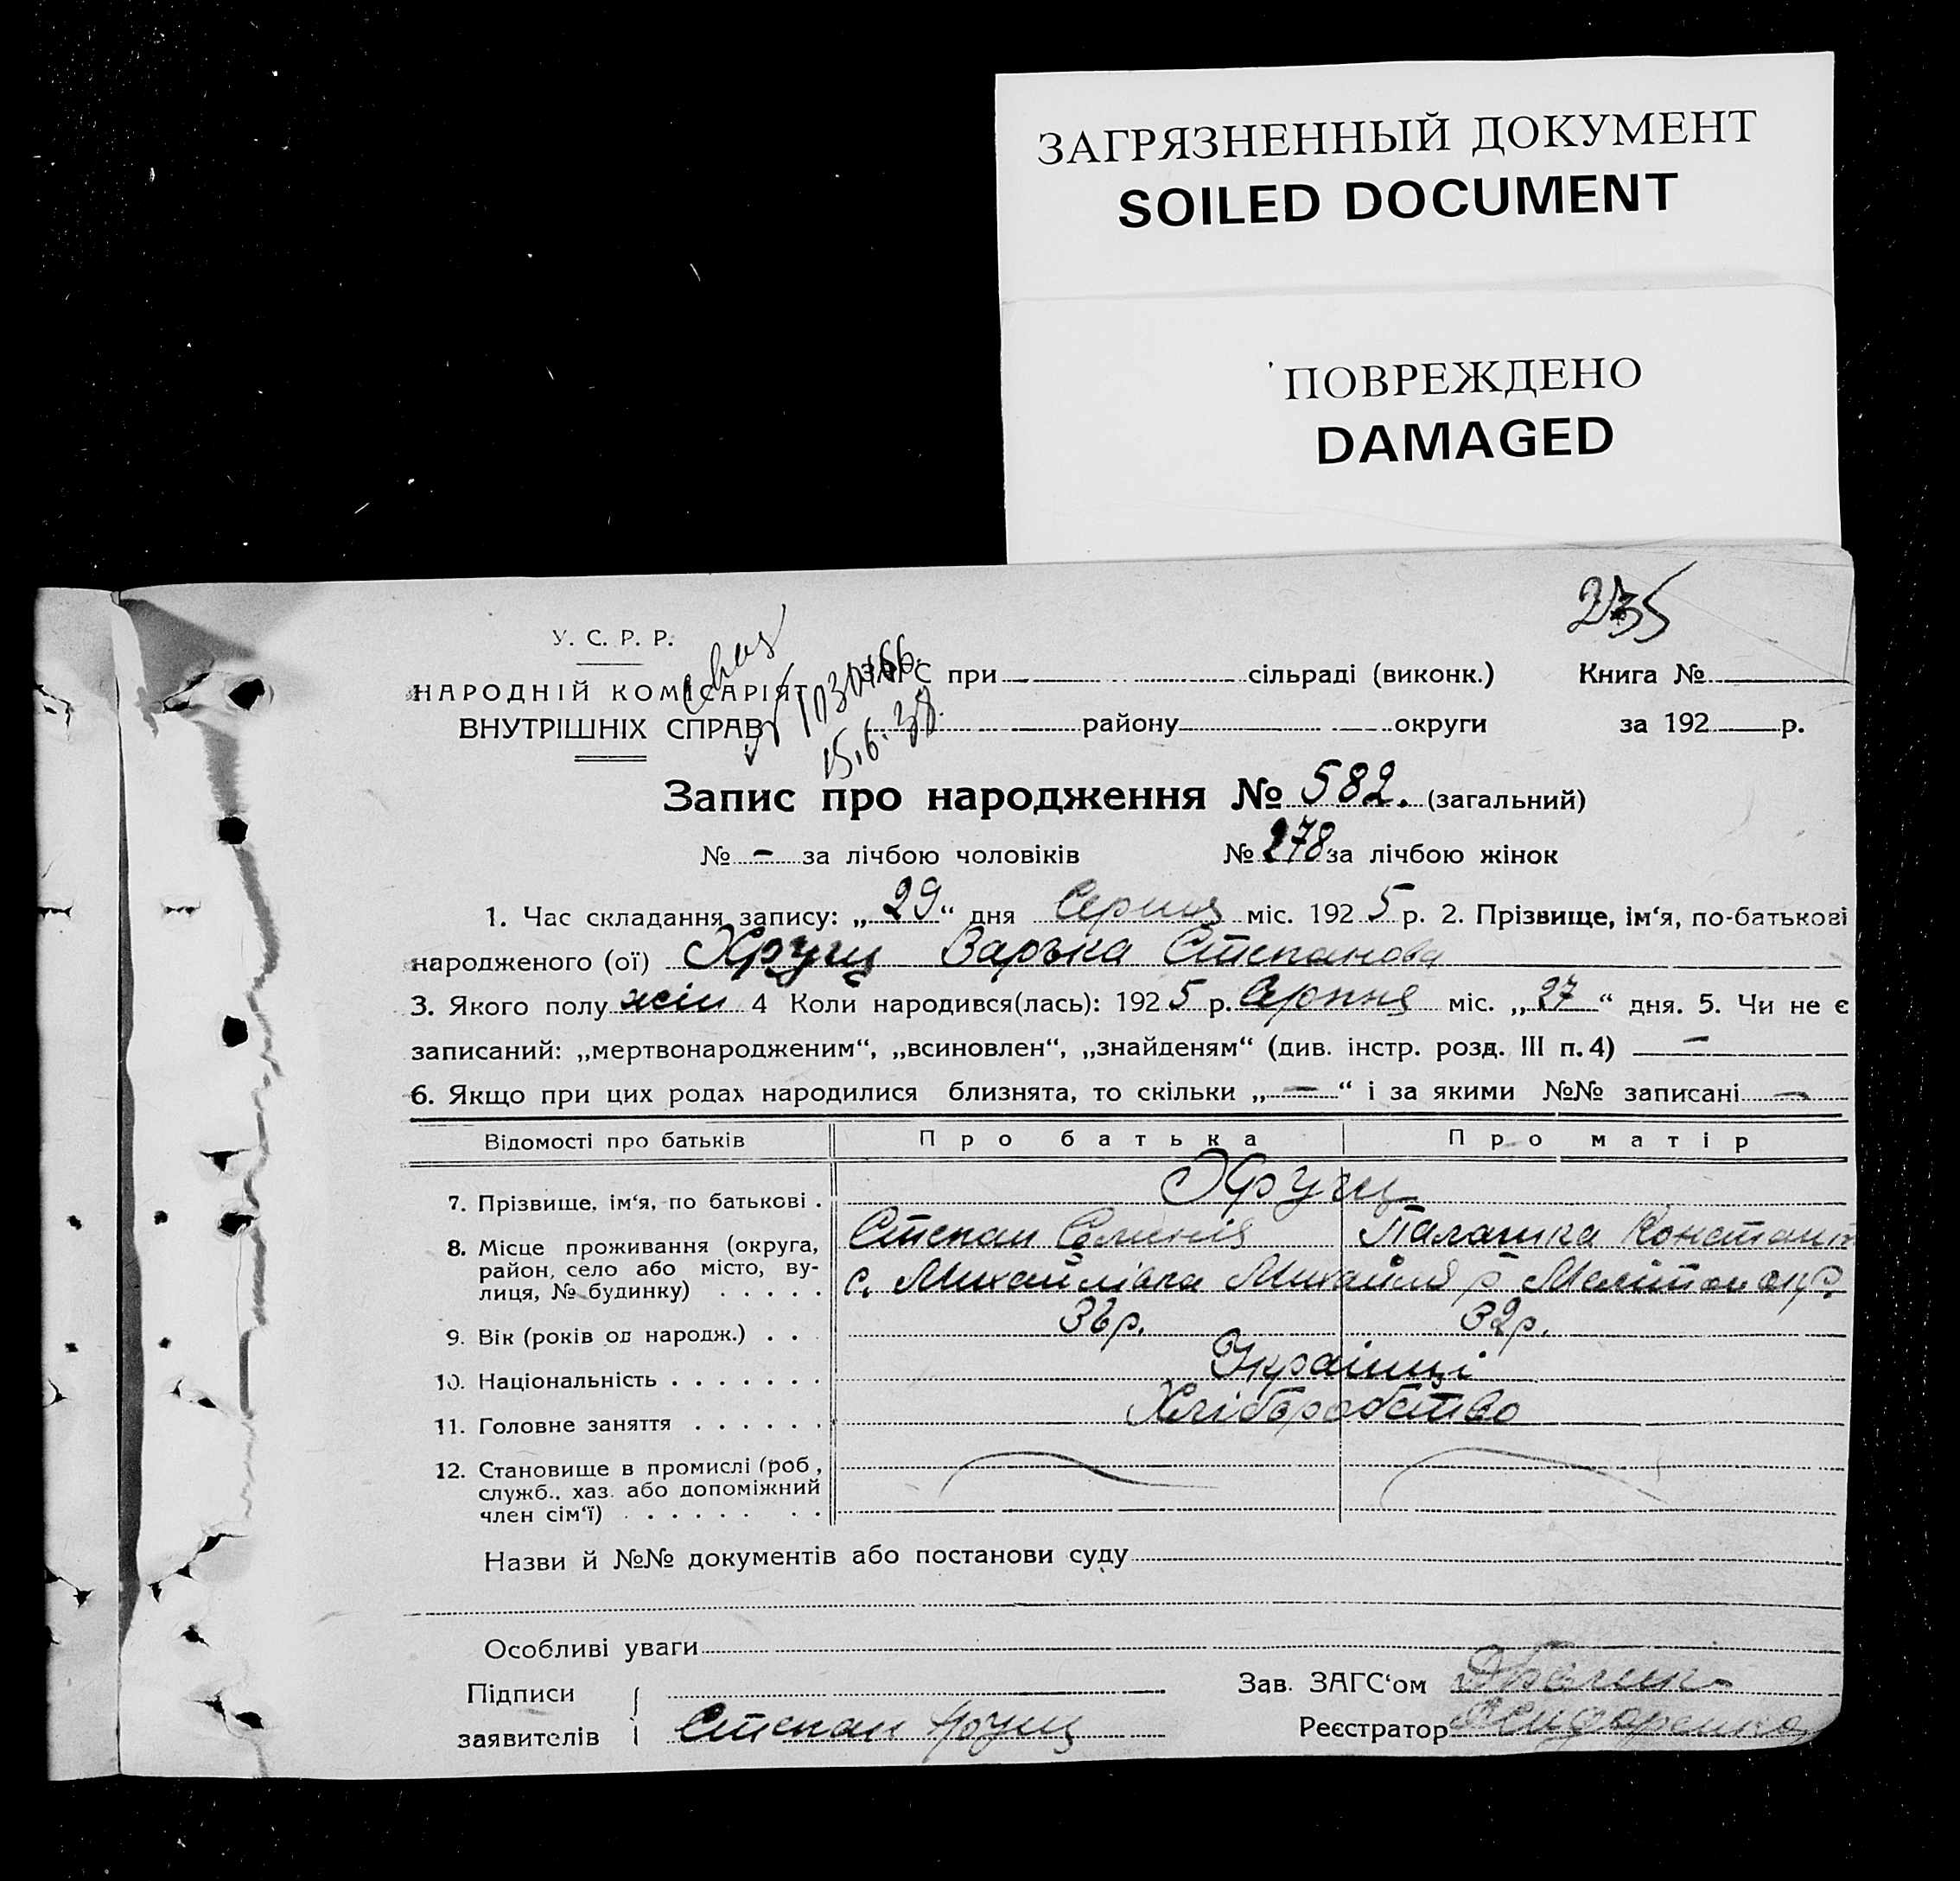 ЗАГРЯЗНЕННЫЙ ДОКУМЕНТ
SOILED DOCUMENT
ПОВРЕЖДЕНО
DAMAGED
235
У. С. Р. Р.
НАРОДНІЙ КОМІСАРІЯТ
ВНУТРІШНІХ СПРАВ
15.6.38.
ЗАГС при сільраді (виконк.) Книга №
району округи за 192 р.
Запис про народження № 582. (загальний)
№ - за лічбою чоловіків № 278 за лічбою жінок
1. Час складання запису: „29“ дня Серпня міс. 1925 р. 2. Прізвище, ім‘я, по-батькові
народженого (ої) Хрущ Варька Степанова
3. Якого полу жін 4 Коли народився(лась): 1925 р. Серпня міс. „27“ дня. 5. Чи не є
записаний: „мертвонародженим“, „всиновлен“, „знайденям“ (див. інстр. розд. III п. 4) —
6. Якщо при цих родах народилися близнята, то скільки „—“ і за якими №№ записані —
Відомості про батьків Про батька Про матір
7. Прізвище, ім‘я, по батькові . Хрущ
Степан Палашка Констант
8. Місце проживання (округа,
район, село або місто, ву-
лиця, № будинку) . . . . . с. Михайлівка Михайл р Мелітоп окр.
9. Вік (років од народж.) . . 36р. 32р.
10. Національність . . . . . . . Українці
11. Головне заняття . . . . . . Хліборобство
12. Становище в промислі (роб.,
служб., хаз. або допоміжний
член сім‘ї) . . . . . . . .
Назви й №№ документів або постанови суду
Особливі уваги
Підписи
заявителів Степан Хрущ
Зав. ЗАГС‘ом
Реєстратор